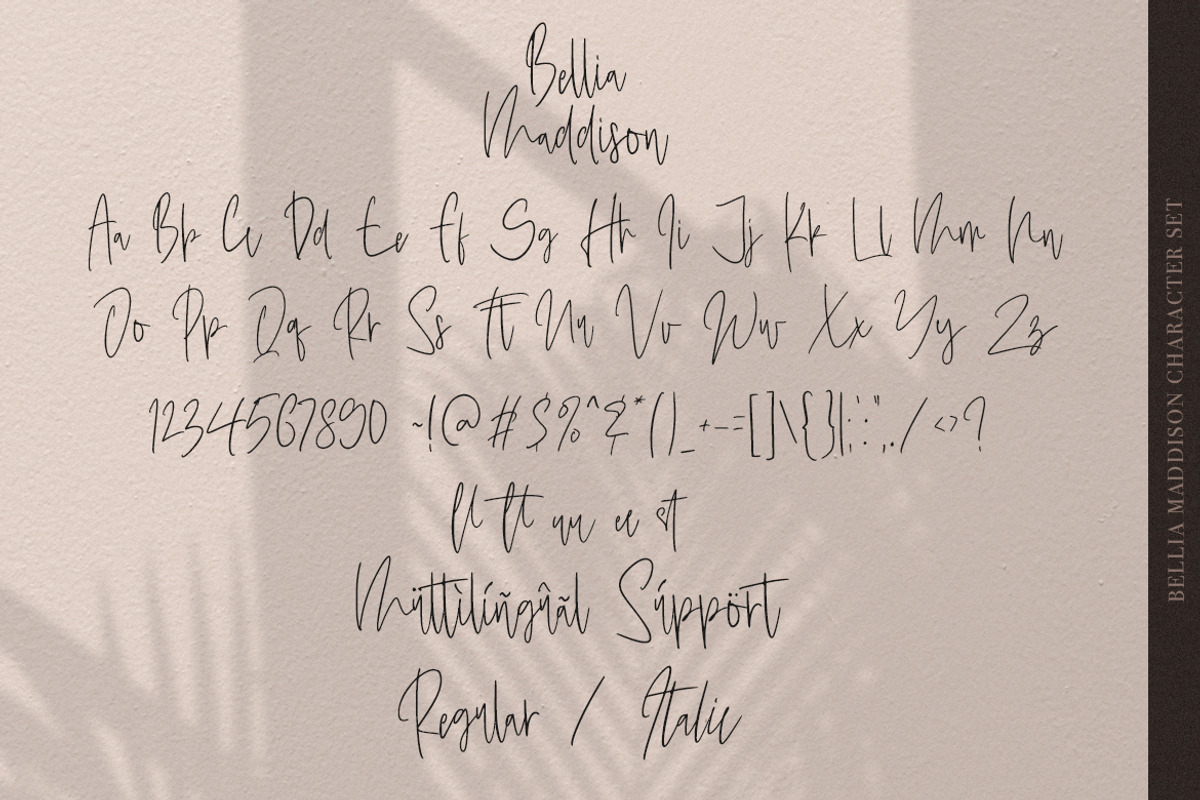 Bellia
Maddison
Aa Bb Cc Dd Ee Ff Gg Hh Ii Jj Kk Ll Mm Nn
Oo Pp Qq Rr Ss Tt Uu Vv Ww Xx Yy Zz
1234567890 ~!@#$%^&*()_+-=[]\{}|;':",./<>?
ll tt
Müttìlíñgûãl Súppört
Regular / Italic
BELLIA MADDISON CHARACTER SET